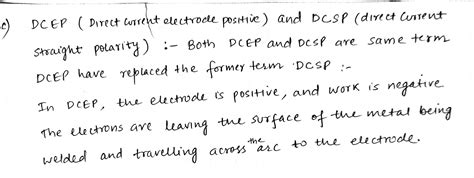 c) DCEP ( Direct current electrode positive) and DCSP (direct current
straight polarity) :- Both DCEP and DCSP are same term
DCEP have replaced the former term DCSP :-
In DCEP, the electrode is positive, and work is negative
The electrons are leaving the surface of the metal being
welded and travelling across the arc to the electrode.